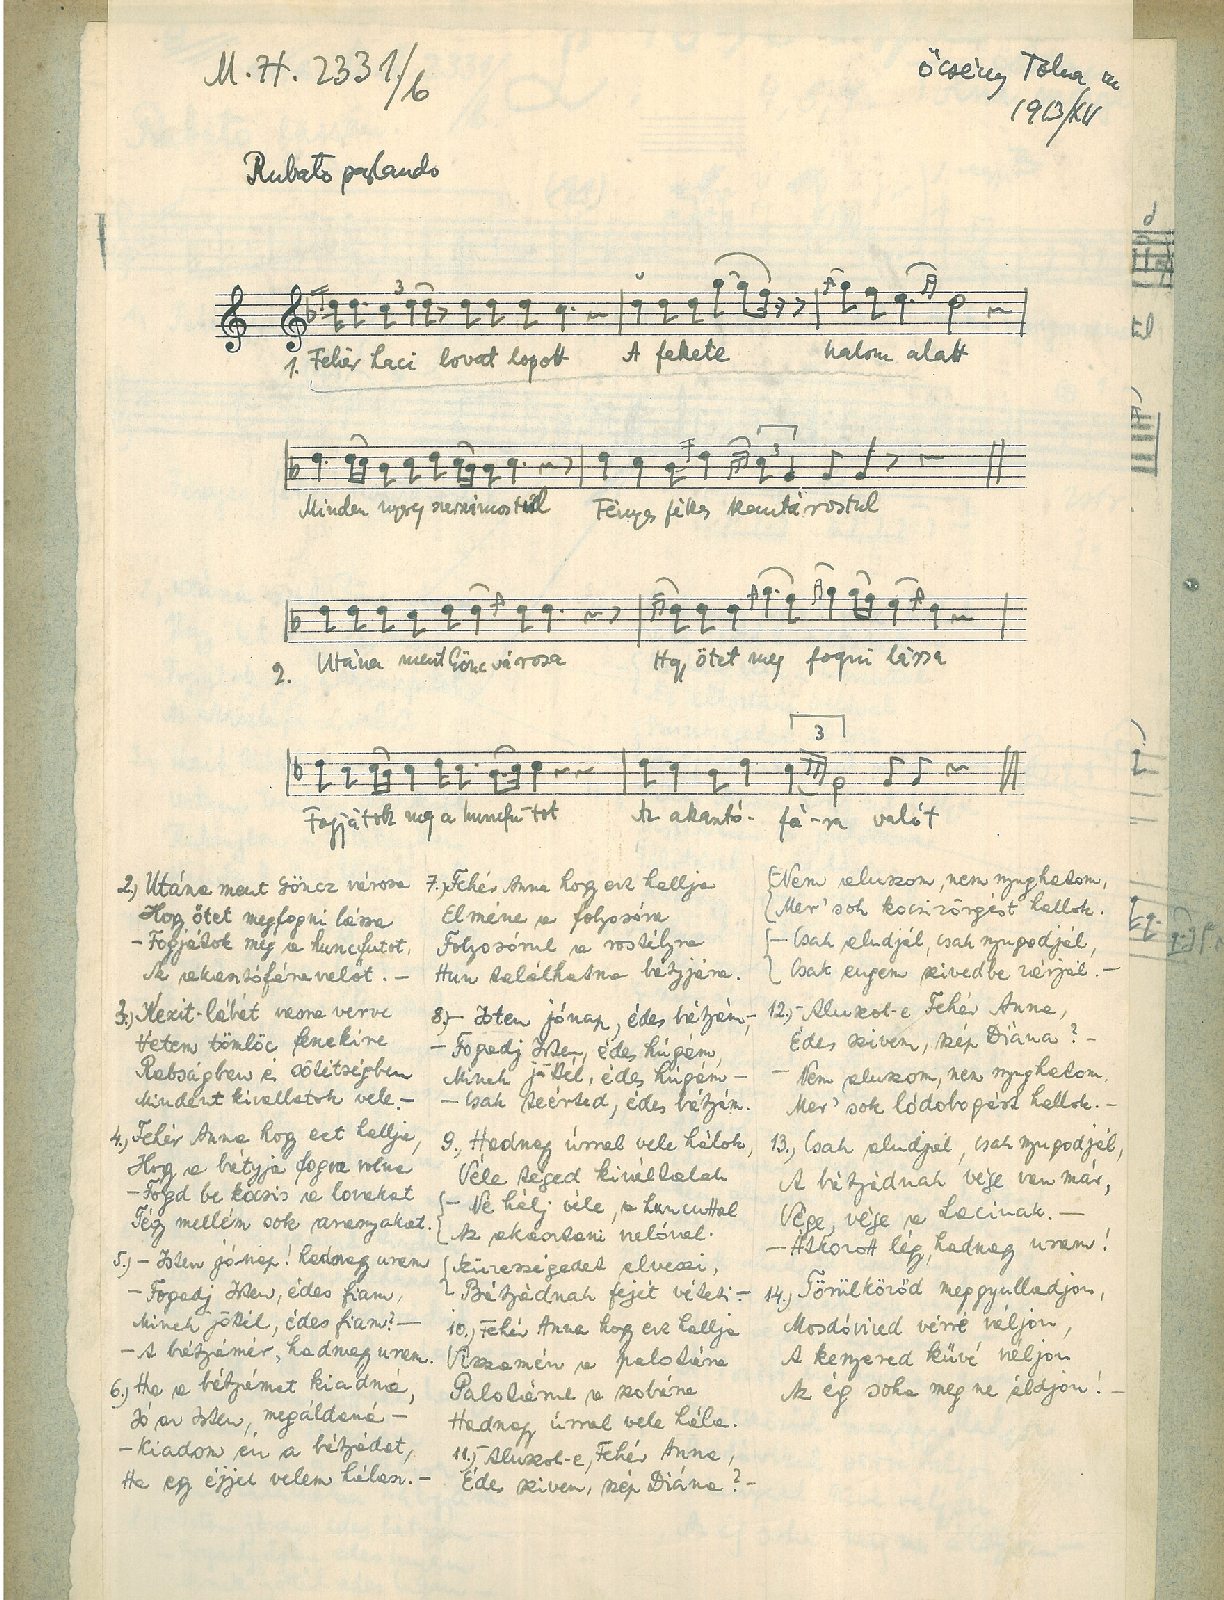 M.H. 2331/6
Őcsény Tolna m
1913/XII
Rubato parlando
3
1. Fehér Laci lovat lopott A fekete halom alatt
3
Minden nyereg szerszámostul Fényes fékes kantárostul
2. Utána ment Gönc városa Hogy őtet meg fogni lássa
3
Fogjátok meg a huncfutot Az akasztó- fá-ra valót
2.) Utána ment Göncz városa
Hogy őtet megfogni lássa
- Fogjátok meg a huncfutot,
Az akasztófáravalót. -
3.) Kézit-lábát vasra verve
Vetem tömlöc fenekire
Rabságban és sötétségben
Mindént kivallatok vele. -
4.) Fehér Anna hogy ezt hallja,
Hogy a bátyja fogva volna
- Fogd be kocsis a lovakat
Tégy mellém sok aranyakat.
5.) - Isten jónap! hadnagy uram
- Fogadj Isten, édes fiam,
Minek jöttél, édes fiam? -
- A bátyámér, hadnagy uram.
6.) Ha a bátyámat kiadná,
Jó az Isten, megáldaná -
- Kiadom én a bátyádat,
Ha egy éjjel velem hálsz. -
7.) Fehér Anna hogy ezt hallja
Elméne a folyosóra
Folyosórul a rostélyra
Hun találhatna bátyjára.
8.) - Isten jónap, édes bátyám -,
- Fogadj Isten, édes húgom,
Minek jöttél, édes húgom -
- Csak teérted, édes bátyám.
9.) Hadnagy úrral vele hálok,
Véle téged kiváltalak
- Ne hálj véle, a huncuttal
Az akasztani valóval.
Szüzességedet elveszi,
Bátyádnak fejét véteti -
10.) Fehér Anna hogy ezt hallja
Visszamén a palotára
Palotárul a szobára
Hadnagy úrral vele hála.
11.) - Aluszol-e, Fehér Anna,
Éde szivem, szép Diána? -
- Nem aluszom, nem nyughatom,
Mer' sok kocsizörgést hallok.
- Csak aludjál, csak nyugodjál,
Csak engem szivedbe zárjál. -
12.) - Aluszol-e Fehér Anna,
Édes szivem, szép Diána? -
- Nem aluszom, nem nyughatom.
Mer' sok lódobogást hallok. -
13.) Csak aludjál, csak nyugodjál,
A bátyádnak vége van már,
Vége, vége a Lacinak. -
- Átkozott légy, hadnagy uram!
14.) Törülköződ meggyulladjon,
Mosdóvized vérré váljon,
A kenyered kűvé váljon
Az ég soha meg ne áldjon! -